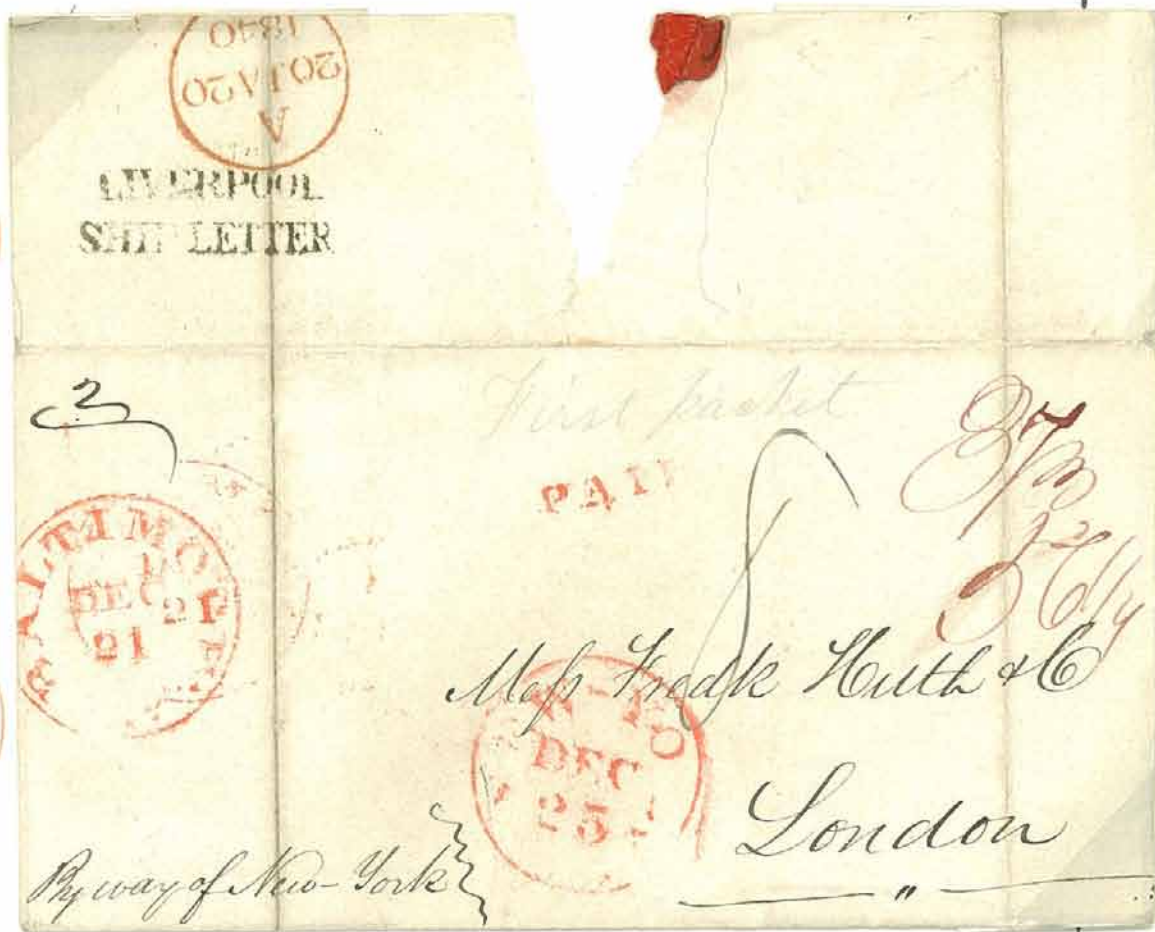 1840
20JA20
A
LIVERPOOL
SHIP LETTER
2
First packet
PAID
37½
8
56¼
BALTIMORE
DEC
21
21
Mess Fredk Huth & Co
NEW-YO
DEC
25
London
By way of New-York